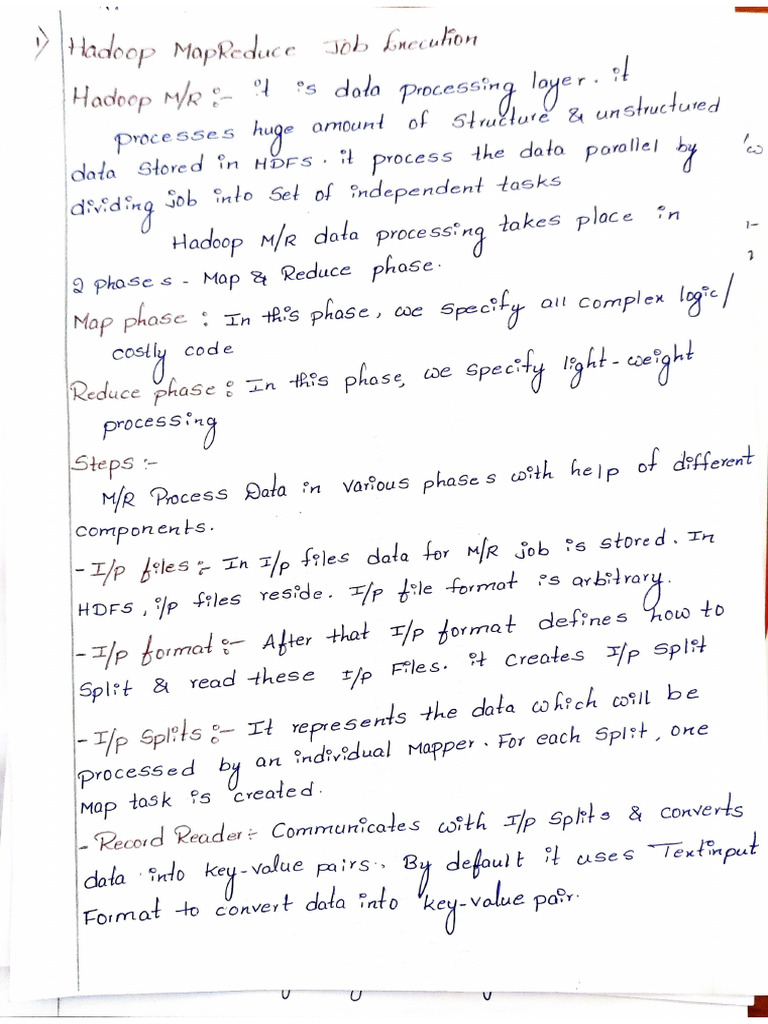 1) Hadoop MapReduce Job Execution
Hadoop M/R :- it is data processing layer. it
processes huge amount of structure & unstructured
data stored in HDFS. it process the data parallel by
dividing job into set of independent tasks
Hadoop M/R data processing takes place in
2 phases - Map & Reduce phase.
Map phase : In this phase, we specify all complex logic/
costly code
Reduce phase : In this phase, we specify light-weight
processing
Steps :-
M/R Process Data in various phases with help of different
components.
- I/p files :- In I/p files data for M/R job is stored. In
HDFS, i/p files reside. I/p file format is arbitrary.
- I/p format :- After that I/p format defines how to
Split & read these I/p Files. it creates I/p split
- I/p Splits :- It represents the data which will be
processed by an individual Mapper. For each split, one
Map task is created.
- Record Reader :- Communicates with I/p splits & converts
data into key-value pairs. By default it uses Textinput
Format to convert data into key-value pair.